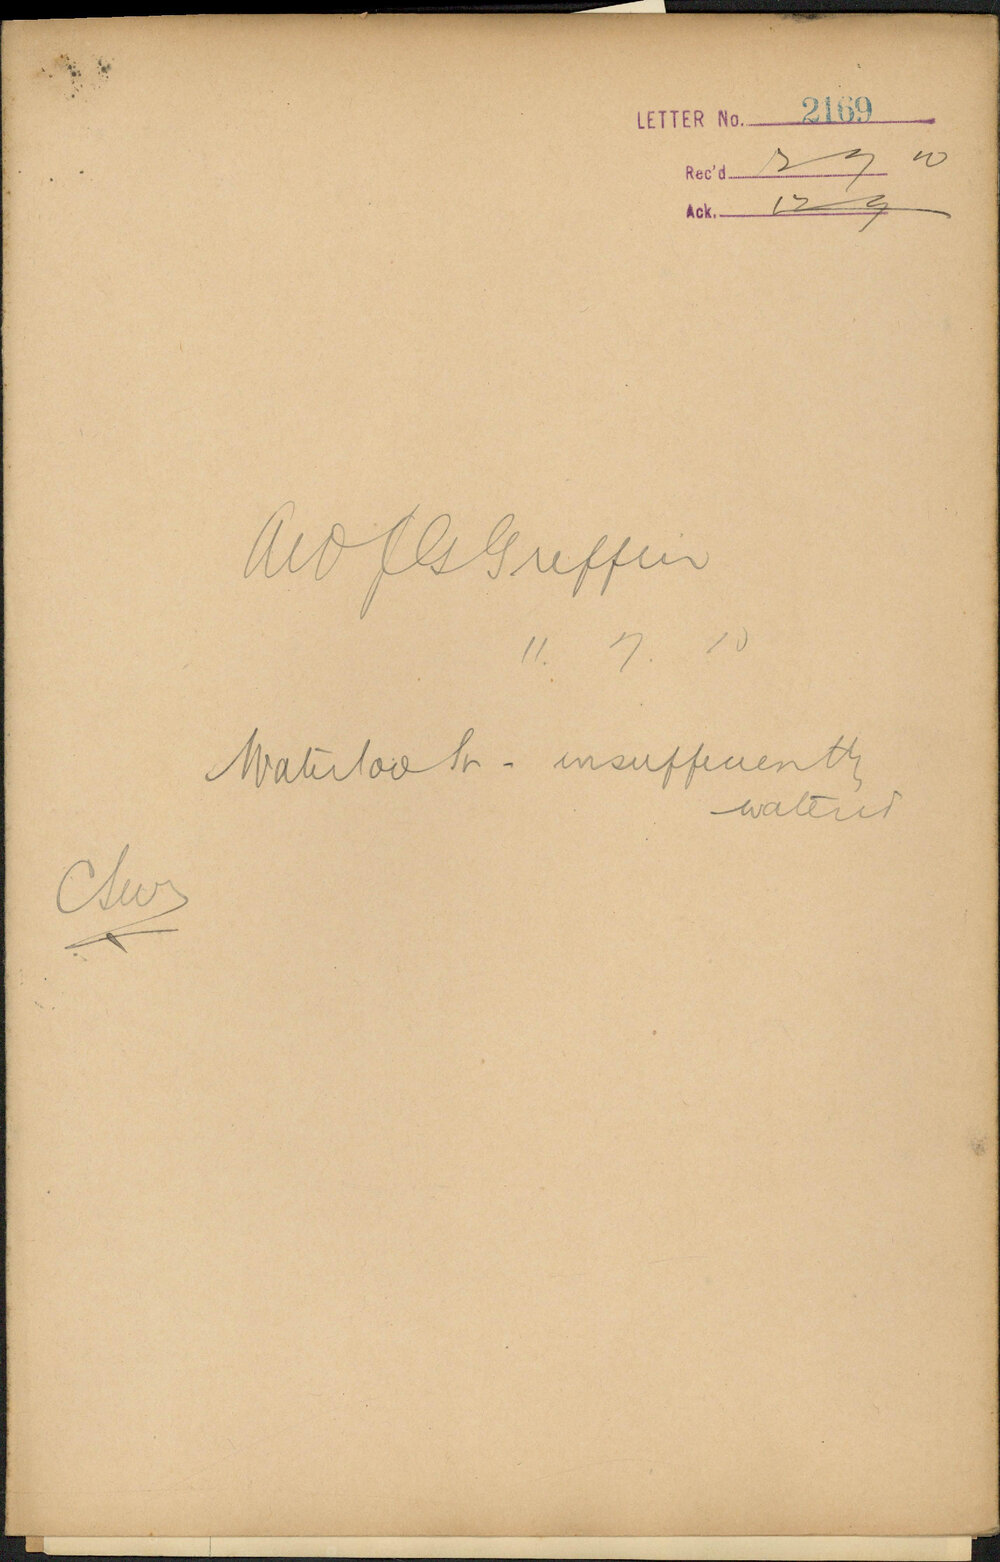 LETTER No. 2169
Rec'd 7 10
Ack. 12 7
Ald J G Griffin
11. 7. 10
Waterloo St - insufficiently
watered